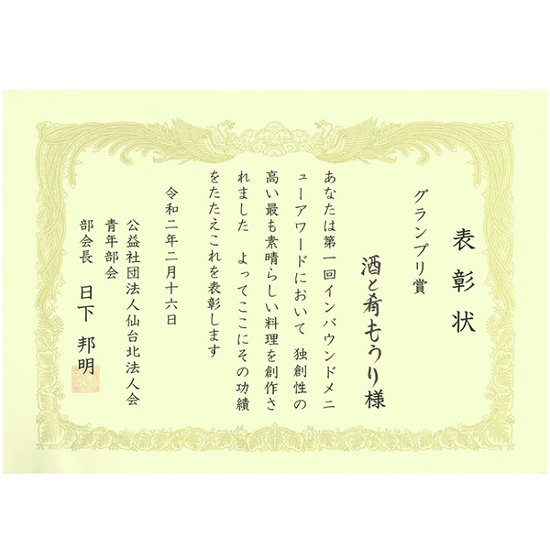 表彰状
グランプリ賞
酒と肴もうり様
あなたは第一回インバウンドメニ
ューアワードにおいて 独創性の
高い最も素晴らしい料理を創作さ
れました よってここにその功績
をたたえこれを表彰します
令和二年二月十六日
公益社団法人仙台北法人会
青年部会
部会長 日下 邦明